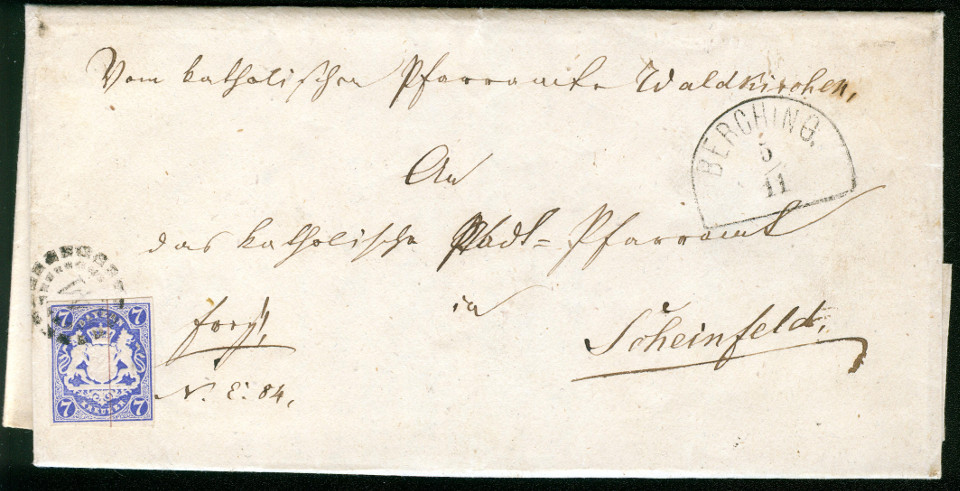 Vom katholischen Pfarramte Waldkirchen,
BERCHING.
5
11
An
das katholische Stadt=Pfarramt
in
Scheinfeld.
N. E: 84.
7 7
BAYERN
KREUZER
7 7